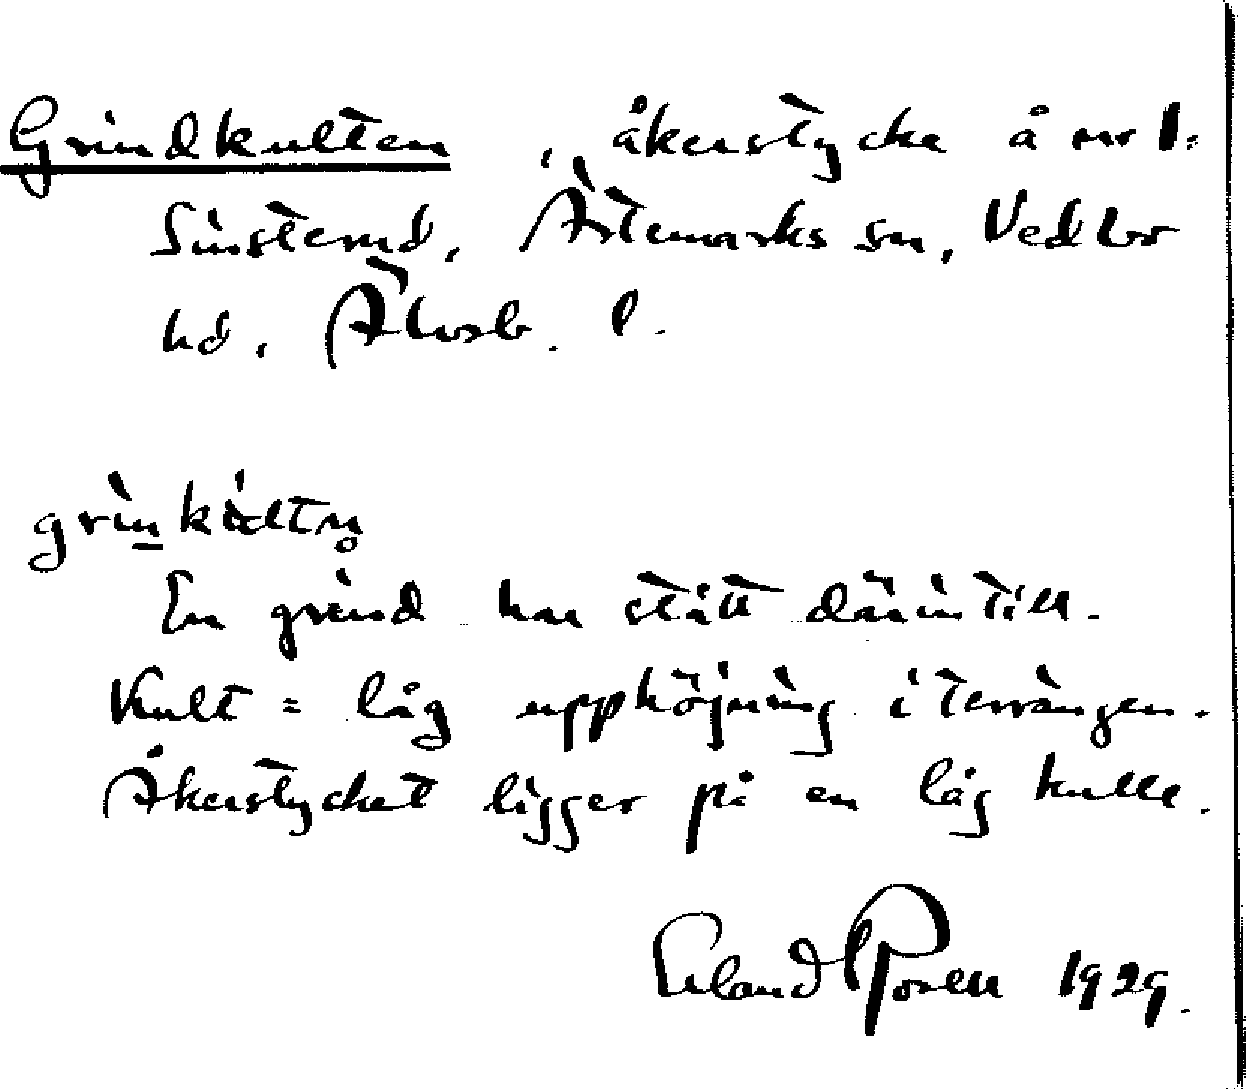 Grindkulten, åkerstycke å nr 1.
Sinsterud, Ärtemarks sn, Vedbo
hd, Älvsb. l.
En grind har stått där intill.
Kult = låg upphöjning i terrängen.
Åkerstycket ligger på en låg kulle.
Erland Rosell 1929.